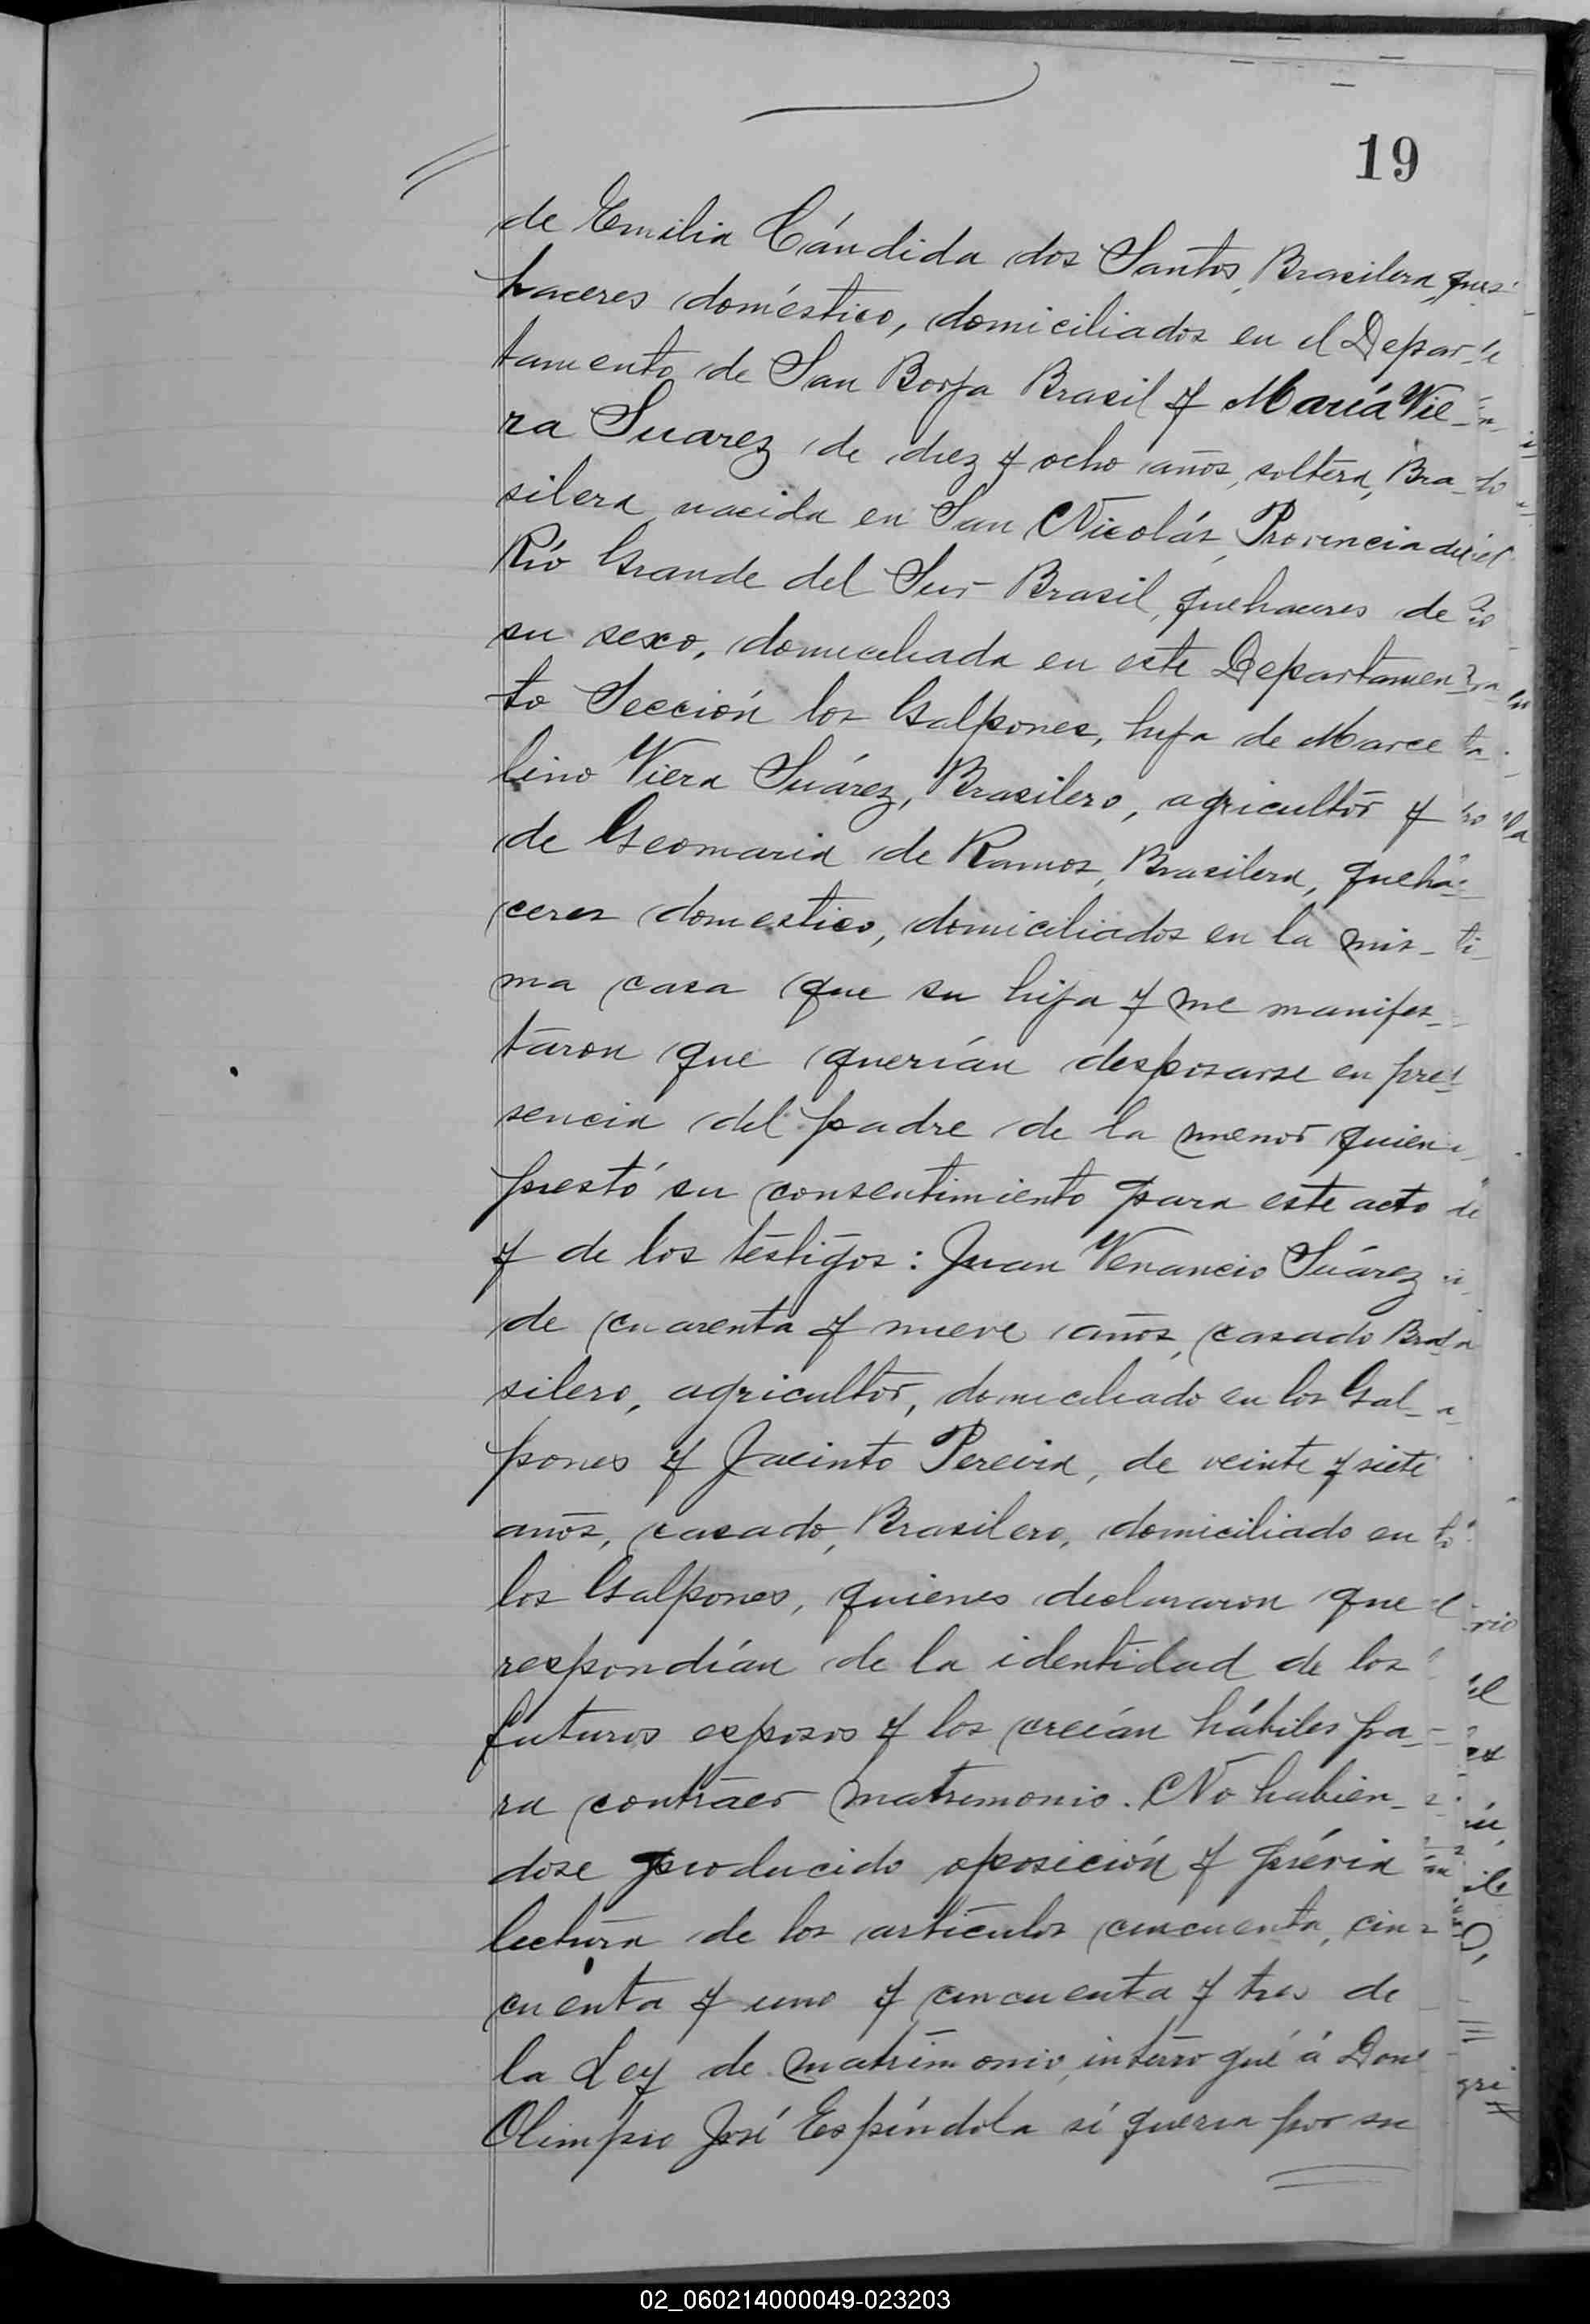 19
de Emilia Cándida dos Santos, Brasilera, que
haceres doméstico, domiciliados en el Depar-
tamento de San Borja Brasil y María Vie-
ra Suarez de diez y ocho años, soltera, Bra-
silera nacida en San Nicolás, Provincia de
Río Grande del Sur Brasil, quehaceres de
su sexo, domiciliada en este Departamen-
to Sección los Galpones, hija de Marce
lino Viera Suárez, Brasilero, agricultor y
de Geomaria de Ramos, Brasilera, queha-
ceres domestico, domiciliados en la mis-
ma casa que su hija y me manifes-
taron que querían desposarse en pre-
sencia del padre de la menor quien
prestó su consentimiento para este acto
y de los testigos: Juan Venancio Suárez
de cuarenta y nueve años, casado Bra-
silero, agricultor, domiciliado en los Gal-
pones y Jacinto Pereira, de veinte y siete
años, casado, Brasilero, domiciliado en
los Galpones, quienes declararon que
respondían de la identidad de los
futuros esposos y los creían hábiles pa-
ra contraer matrimonio. No habien-
dose producido oposición y prévia
lectura de los artículos cincuenta, cin-
cuenta y uno y cincuenta y tres de
la Ley de matrimonio, interrogué á Don
Olimpio José Espíndola si queria por su
02_060214000049-023203